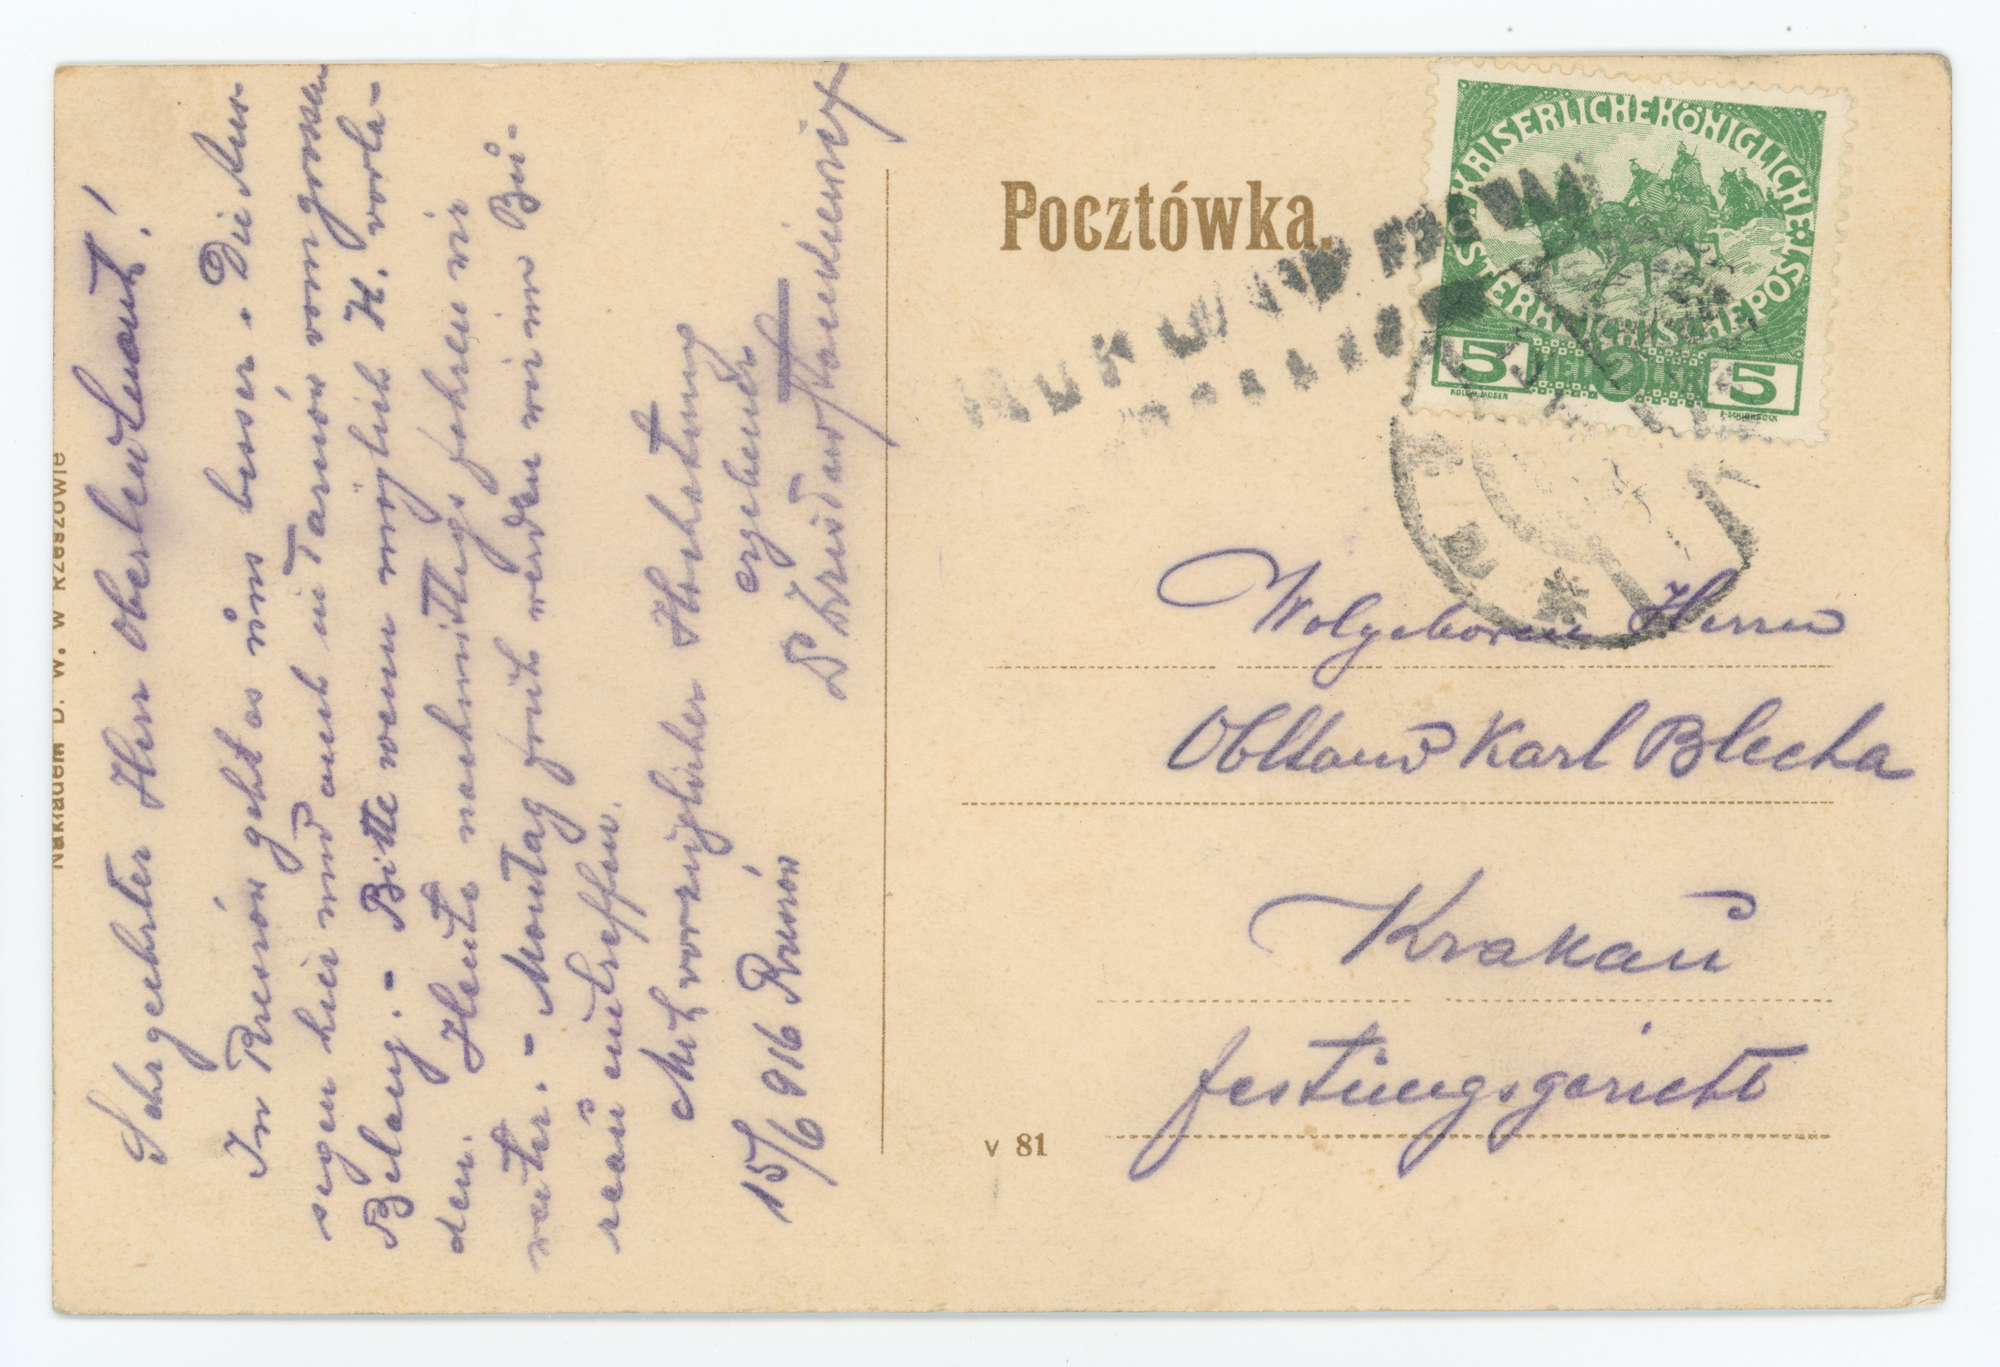 Nakładem D. W. W Rzeszowie
Sehrgeehrter Herr Oberleutenant!
In Rzeszów geht es uns besser. Die Aus-
sagen hier und auch in Tarnów vom grossen
Belang. – Bitte wenn möglich H. verla-
den. Heute nachmittags fahren wir
weiter. – Montag früh werden wir im Bü-
reau eintreffen.
Mit vorzüglicher Hochachtung
ergebenster
15/6 916 Rzeszów
Pocztówka.
KAISERLICHE KÖNIGLICHE
ÖSTERREICHISCHE POST
5 HELLER 5
2
KOLOM. MOSER
F. SCHIRNBÖCK
Wolgeboren Herrn
Obltant Karl Blecha
Krakau
Festungsgericht
V 81